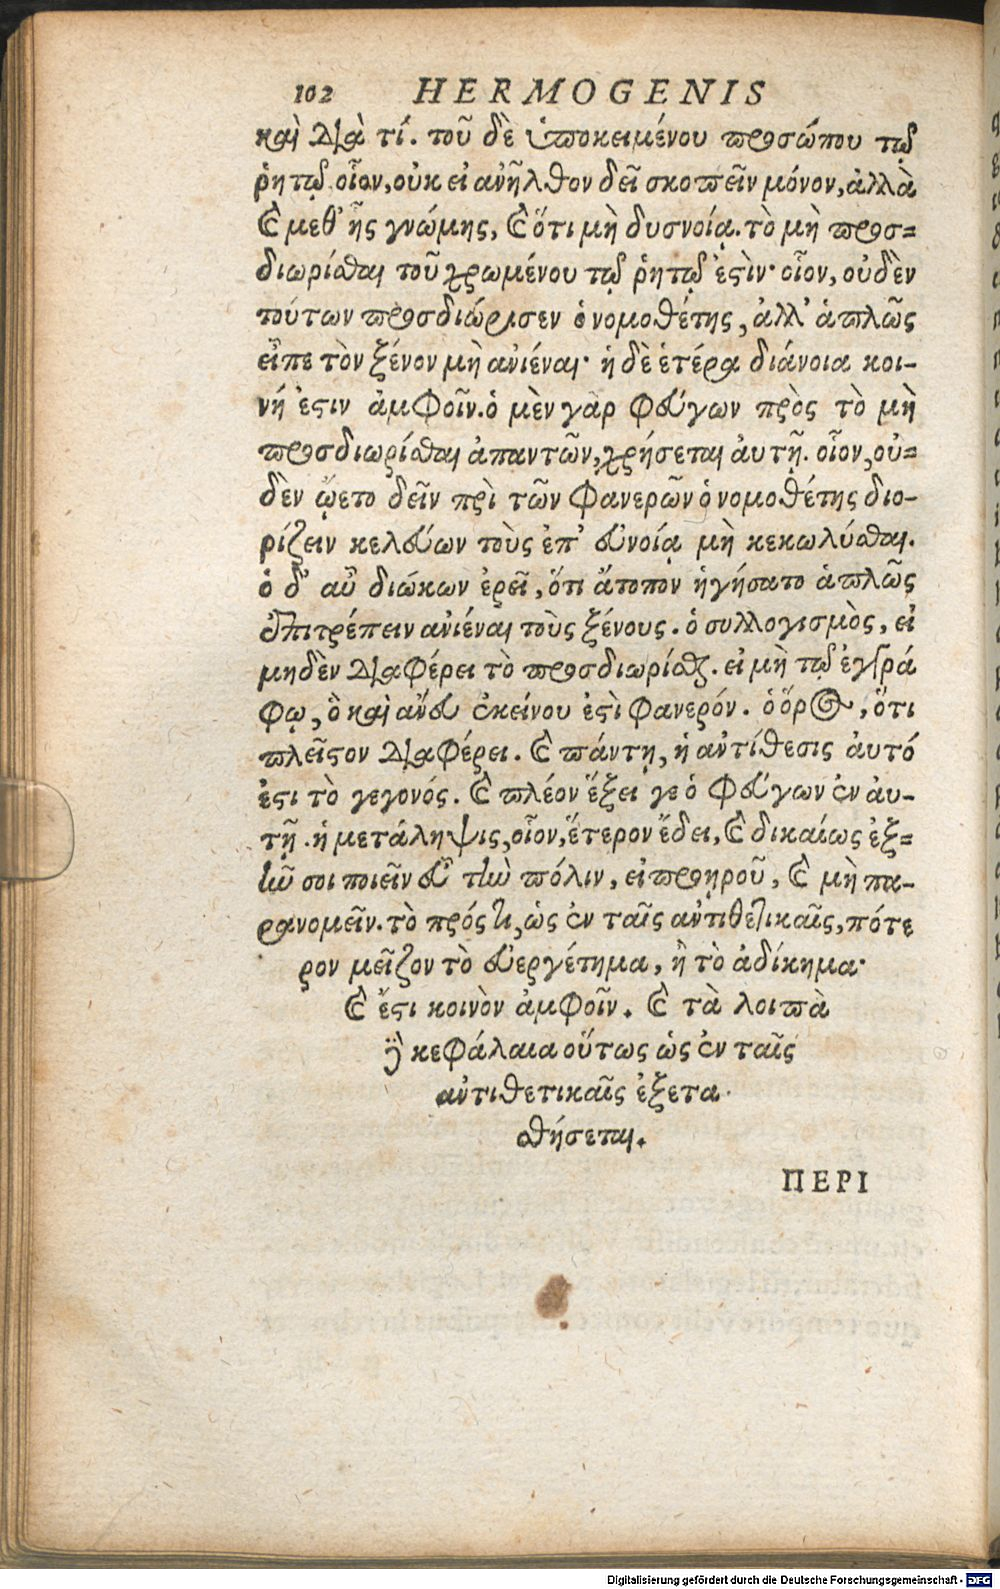 102 HERMOGENIS
καὶ διὰ τί. τοῦ δὲ ὑποκειμένου προσώπου τῷ
ῥητῷ οἷον, οὐκ εἰ ἀνῆλθον δεῖ σκοπεῖν μόνον, ἀλλὰ
καὶ μεθ' ἧς γνώμης, καὶ ὅτι μὴ δυσνοίᾳ. τὸ μὴ προσ-
διωρίσθαι τοῦ χρωμένου τῷ ῥητῷ ἐστὶν· οἷον, οὐδὲν
τούτων προσδιώρισεν ὁ νομοθέτης, ἀλλ' ἁπλῶς
εἶπε τὸν ξένον μὴ ἀνιέναι· ἡ δὲ ἑτέρα διάνοια κοι-
νή ἐστιν ἀμφοῖν. ὁ μὲν γὰρ φεύγων πρὸς τὸ μὴ
προσδιωρίσθαι ἀπαντῶν, χρήσεται ἀυτῇ. οἷον, οὐ-
δὲν ᾤετο δεῖν περὶ τῶν φανερῶν ὁ νομοθέτης διο-
ρίζειν κελεύων τοὺς ἐπ' εὐνοίᾳ μὴ κεκωλύσθαι.
ὁ δ' αὖ διώκων ἐρεῖ, ὅτι ἄτοπον ἡγήσατο ἁπλῶς
ἐπιτρέπειν ἀνιέναι τοὺς ξένους. ὁ συλλογισμὸς, εἰ
μηδὲν διαφέρει τὸ προσδιωρίσθαι. εἰ μὴ τῷ ἐγγρά
φῳ, ὃ καὶ ἄνευ ἐκείνου ἐστὶ φανερόν. ὁ ὅρος, ὅτι
πλεῖστον διαφέρει. καὶ πάντῃ, ἡ ἀντίθεσις ἀυτό
ἐστι τὸ γεγονός. καὶ πλέον ἕξει γε ὁ φεύγων ἐν ἀυ-
τῇ. ἡ μετάληψις, οἷον, ἕτερον ἔδει, καὶ δικαίως ἐξ-
ῆν σοι ποιεῖν εὖ τὴν πόλιν, εἰ προῃροῦ, καὶ μὴ πα-
ρανομεῖν. τὸ πρός τι, ὡς ἐν ταῖς ἀντιθετικαῖς, πότε
ρον μεῖζον τὸ εὐεργέτημα, ἢ τὸ ἀδίκημα·
καὶ ἔστι κοινὸν ἀμφοῖν. καὶ τὰ λοιπὰ
κεφάλαια οὕτως ὡς ἐν ταῖς
ἀντιθετικαῖς ἐξετα
σθήσεται.
ΠΕΡΙ
Digitalisierung gefördert durch die Deutsche Forschungsgemeinschaft - DFG